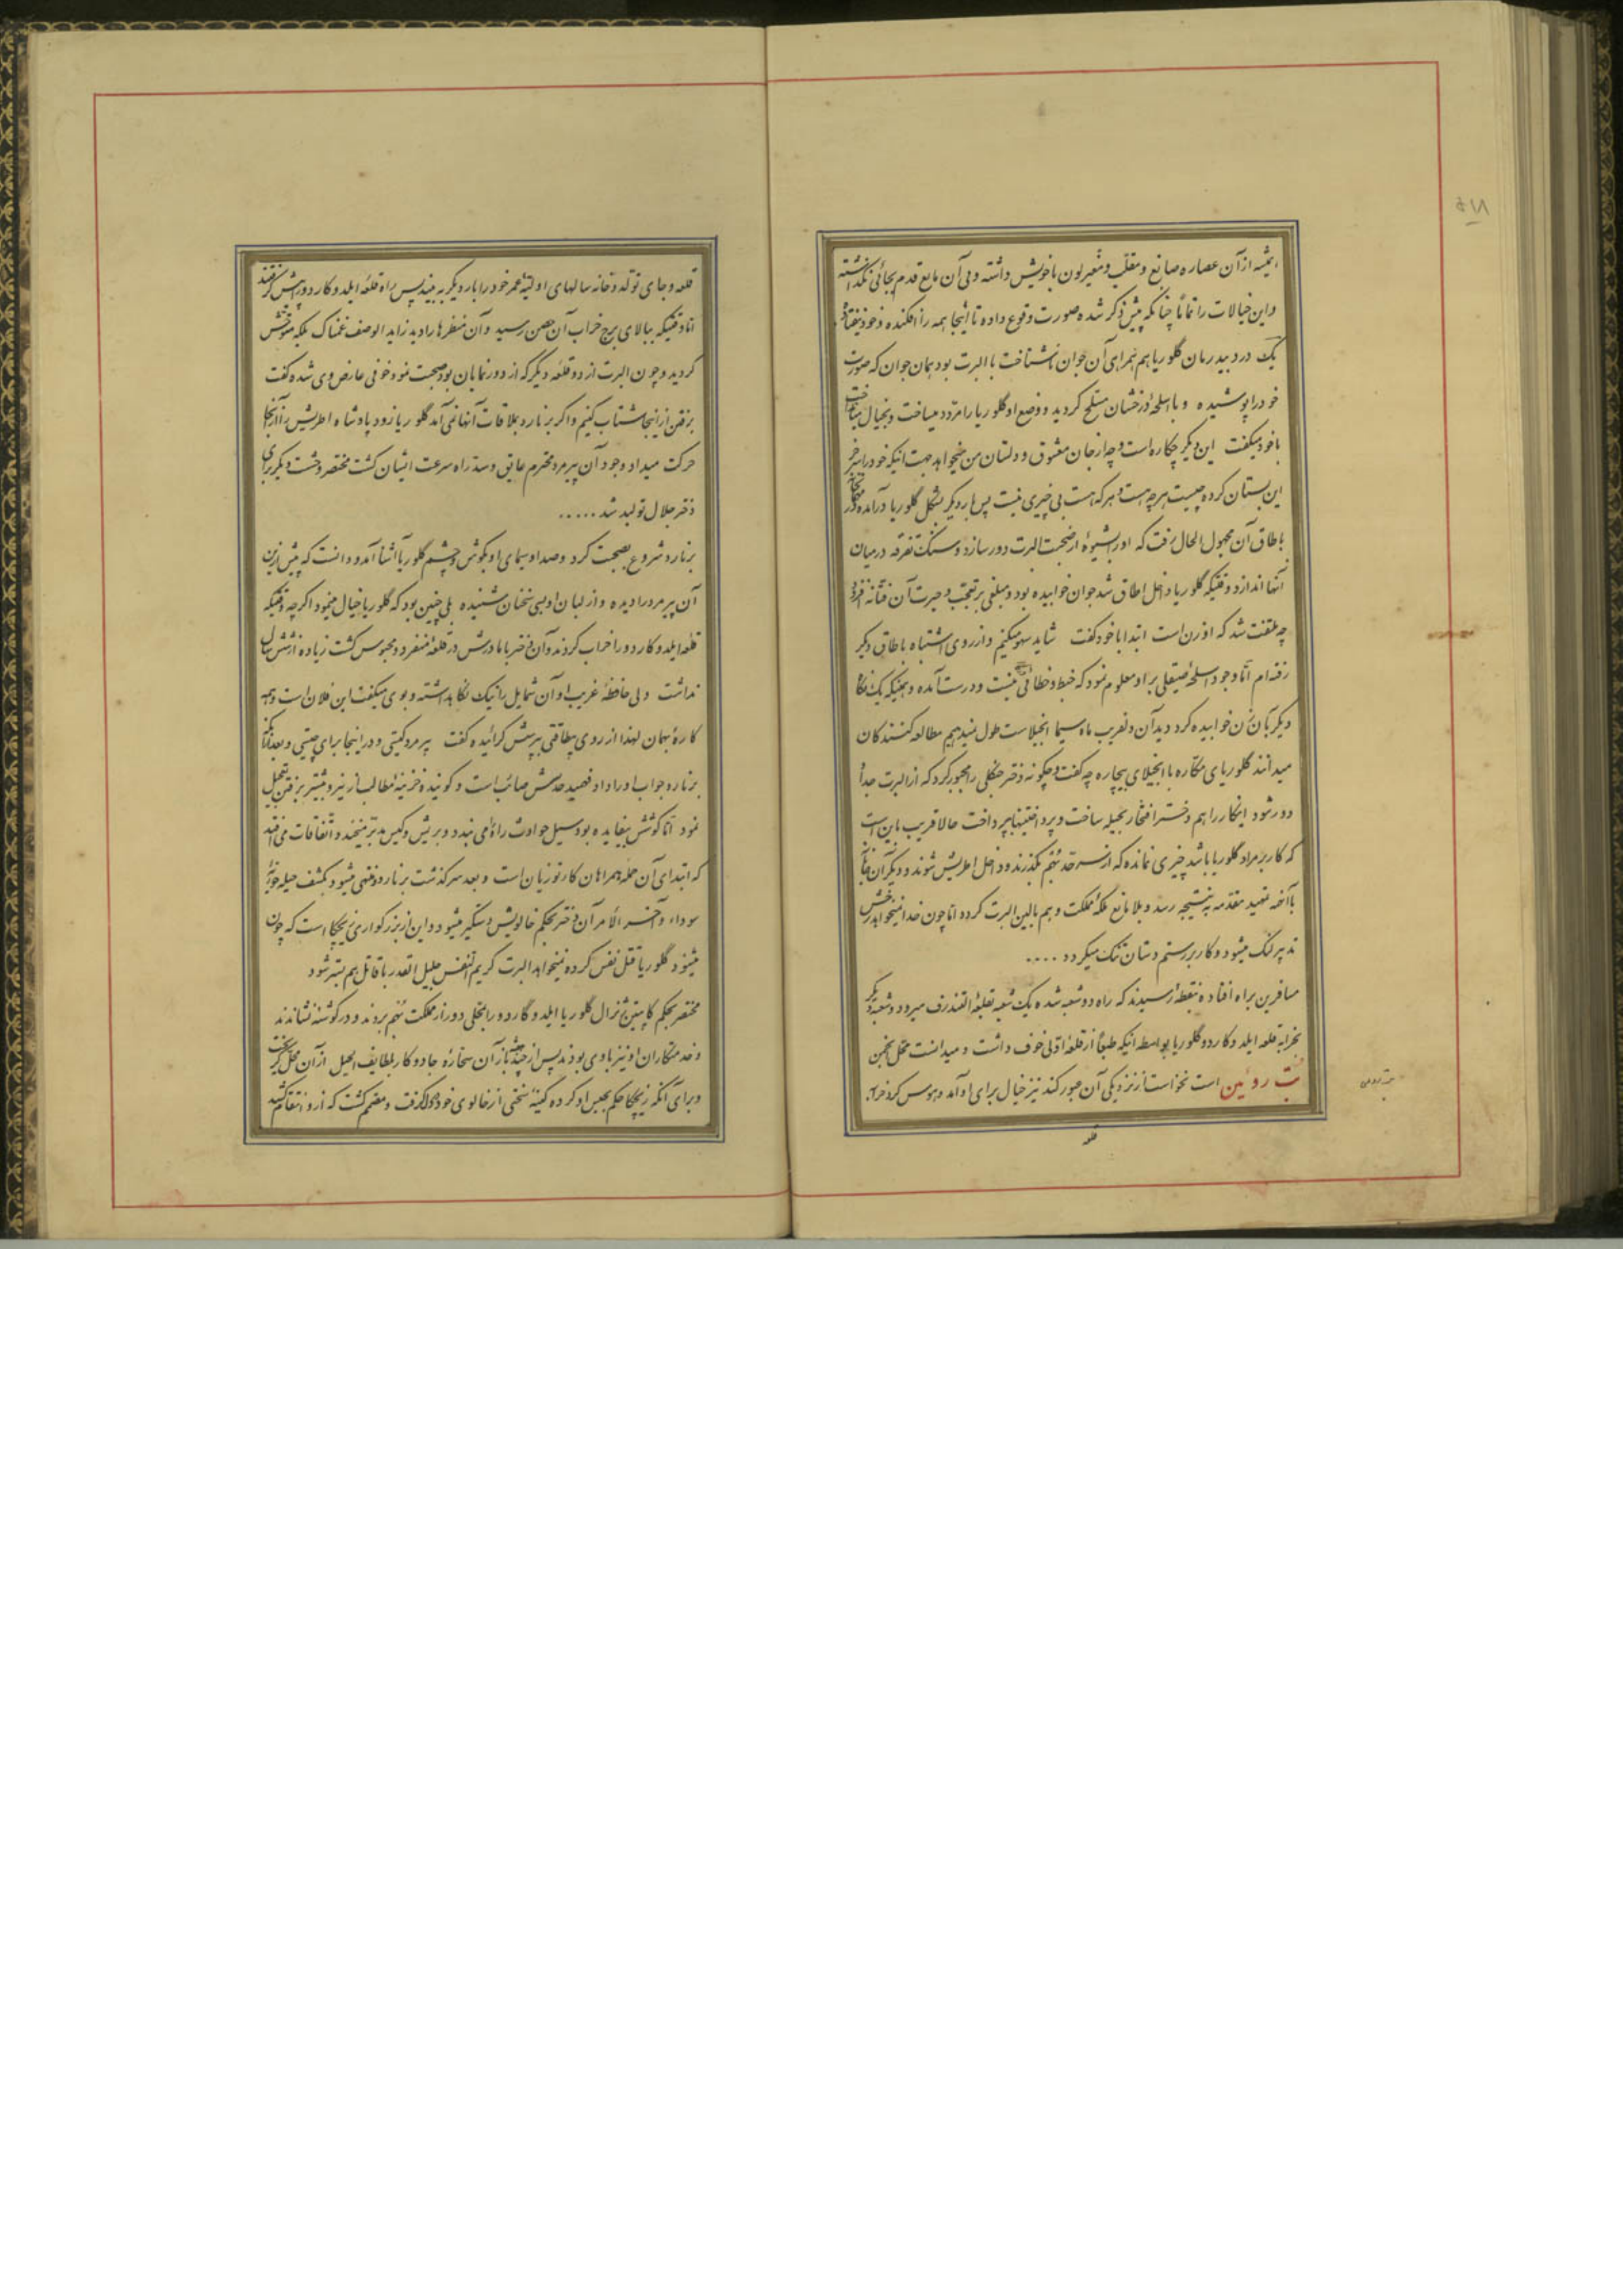 واین خیالات را تماماً چنانکه پیش ذکر شده صورت وقوع داده تا اینجا همه را افکنده وخود نیفتاده
یک درد بیدرمان گلوریا هم همراهی آن جوان ناشناخت با البرت بود همان جوان که صورت
خود را پوشیده و با اسلحهٔ درخشان مسلح گردیده و وضع او گلوریا را مردد میساخت و بخیال میانداخت
باخود میگفت این دیگر چکاره است و چه از جان معشوق و دلستان من میخواهد بجهت اینکه خود را
این بستان کرده چیست هر چه هست و هر که هست بی چیزی نیست پس بار دیگر بشکل گلوریا درآمده
باطاق آن مجهول الحال رفت که او را بشیوهٔ از صحبت البرت دور سازد و سنگ تفرقه در میان
آنها اندازد وقتیکه گلوریا داخل اطاق شد جوان خوابیده بود و مبلغی بر تعجب و حیرت آن فتانه افزود
چه ملتفت شد که او زن است ابتدا با خود گفت شاید سهو میکنم و از روی اشتباه باطاق دیگر
رفته ام اما وجود اسلحهٔ صیقلی بر او معلوم نمود که خبط و خطائی نیست و درست آمده و همینکه یک نگاه
دیگر بآن زن خوابیده کرد دید آن دلفریب ماه سیما انجیلاست طول نمیدهیم مطالعه کنندگان
میدانند گلوریای مکاره با انجیلای بیچاره چه گفت و چگونه دختر جنگلی را مجبور کرد که از البرت جدا و
دور شود اینکار را هم دختر افتخار بحیله ساخت و پرداختنیها بپرداخت حالا قریب باین است
که کار بر مراد گلوریا باشد چیزی نمانده که از سرحد نهم بگذرند و داخل اطریش شوند و دیگر آن
با آنهمه تمهید مقدمه به نتیجه رسد و بلا مانع ملکهٔ مملکت و هم بالین البرت گردد اما چون خدا نمیخواهد
تدبیر لنگ میشود و کار بر رستم دستان تنگ میگردد ....
مسافرین براه افتاده بنقطهٔ رسیدند که راه دو شعبه شده یک شعبه بقلعهٔ القندرف میرود و شعبهٔ دیگر
بخرابهٔ قلعه ایلدوکاردو گلوریا بواسطهٔ اینکه طبعاً از قلعهٔ اولی خوف داشت و میدانست محل انجمن
بت روئین است نخواست از نزدیکی آن عبور کند نیز خیال برای او آمد و هوس کرد خرابهٔ
قلعه
بت روئین
قلعه و جای تولد و خانه سالهای اولیهٔ عمر خود را بار دیگر به بیند پس راه قلعهٔ ایلدوکاردو را پیش گرفتند
اما وقتیکه ببالای برج خراب آن حصن رسید و آن منظرها را دید زاید الوصف غمناک بلکه متوحش
گردید و چون البرت از دو قلعهٔ دیگر که از دور نمایان بود صحبت نمود خوفی عارض وی شده گفت
برفتن از اینجا شتاب کنیم و اگر برنارد بملاقات آنها نمی آمد گلوریا زود پادشاه اطریش را از آنجا
حرکت میداد وجود آن پیرمرد محترم عایق و سد راه سرعت ایشان گشت مختصر وحشت دیگر برای
دختر جلال تولید شد .....
برنارد شروع بصحبت کرد و صدا و سیمای او بگوش و چشم گلوریا آشنا آمد و دانست که پیش ازین
آن پیرمرد را دیده و از لبان او بسی سخنان شنیده بلی چنین بود که گلوریا خیال مینمود اگرچه وقتیکه
قلعه ایلدوکاردو را خراب کردند و آن دختر با مادرش در قلعهٔ منفرد و محبوس گشت زیاده از شش سال
نداشت ولی حافظهٔ غریب او آن شمایل را نیک نگاهداشته و بوی میگفت این فلان است و همه
کارهٔ بهمان لهذا از روی بیطاقتی بپرسش گرائیده گفت پیرمرد کیستی و در اینجا برای چیستی و بعد از آنکه
برنارد جواب او را داد فهمید حدسش صائب است و گوینده خزینهٔ مطالب از نیرو بیشتر برفتن تعجیل
نمود اما کوشش بیفایده بود سیل حوادث راه نمی بندد و بریش و گیس مدبر میخندد و اتفاقات می افتد
که ابتدای آن حمله همراهان کارنوزیان است و بعد سرگذشت برنارد و منتهی میشود بکشف حیلهٔ
سوداء و آخر الامر آن دختر بحکم خالویش دستگیر میشود و این از بزرگواری زیچکا است که چون
میشنود گلوریا قتل نفس کرده نمیخواهد البرت کریم النفس جلیل القدر با قاتل هم بستر شود
مختصر بحکم کاپیتن ژنرال گلوریا ایلدوکاردو را بمحلی دور از مملکت نهم بردند و در گوشه نشاندند
و خدمتکاران او نیز با وی بودند پس از چندی باز آن سحارهٔ جادوکار بلطایف الحیل از آن محل گریخت
و برای آنکه زیچکا حکم بحبس او کرده کینهٔ سختی از خالوی خود در دل گرفت و مصمم گشت که از او انتقام کشد